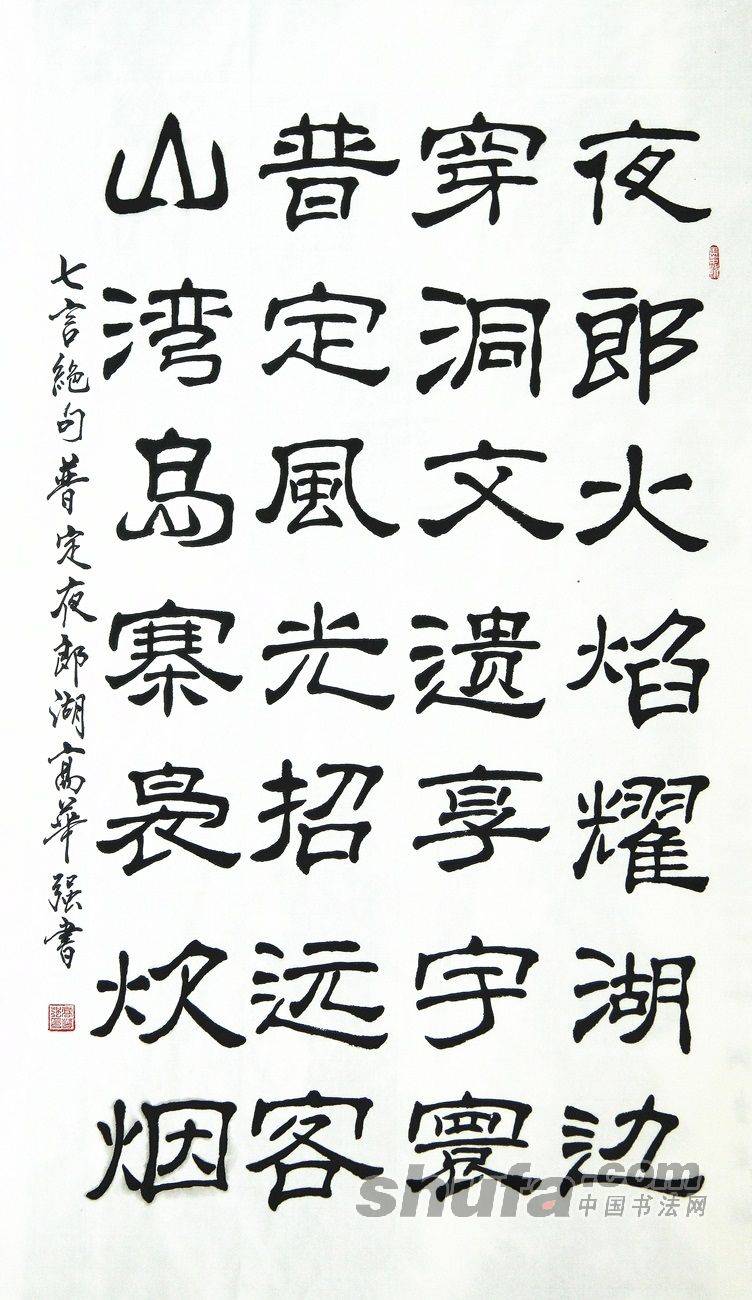 夜郎火焰耀湖边
穿洞文遗享宇寰
普定風光招远客
山湾岛寨袅炊烟
七言絕句普定夜郎湖高華强書
shufa.com
中国书法网